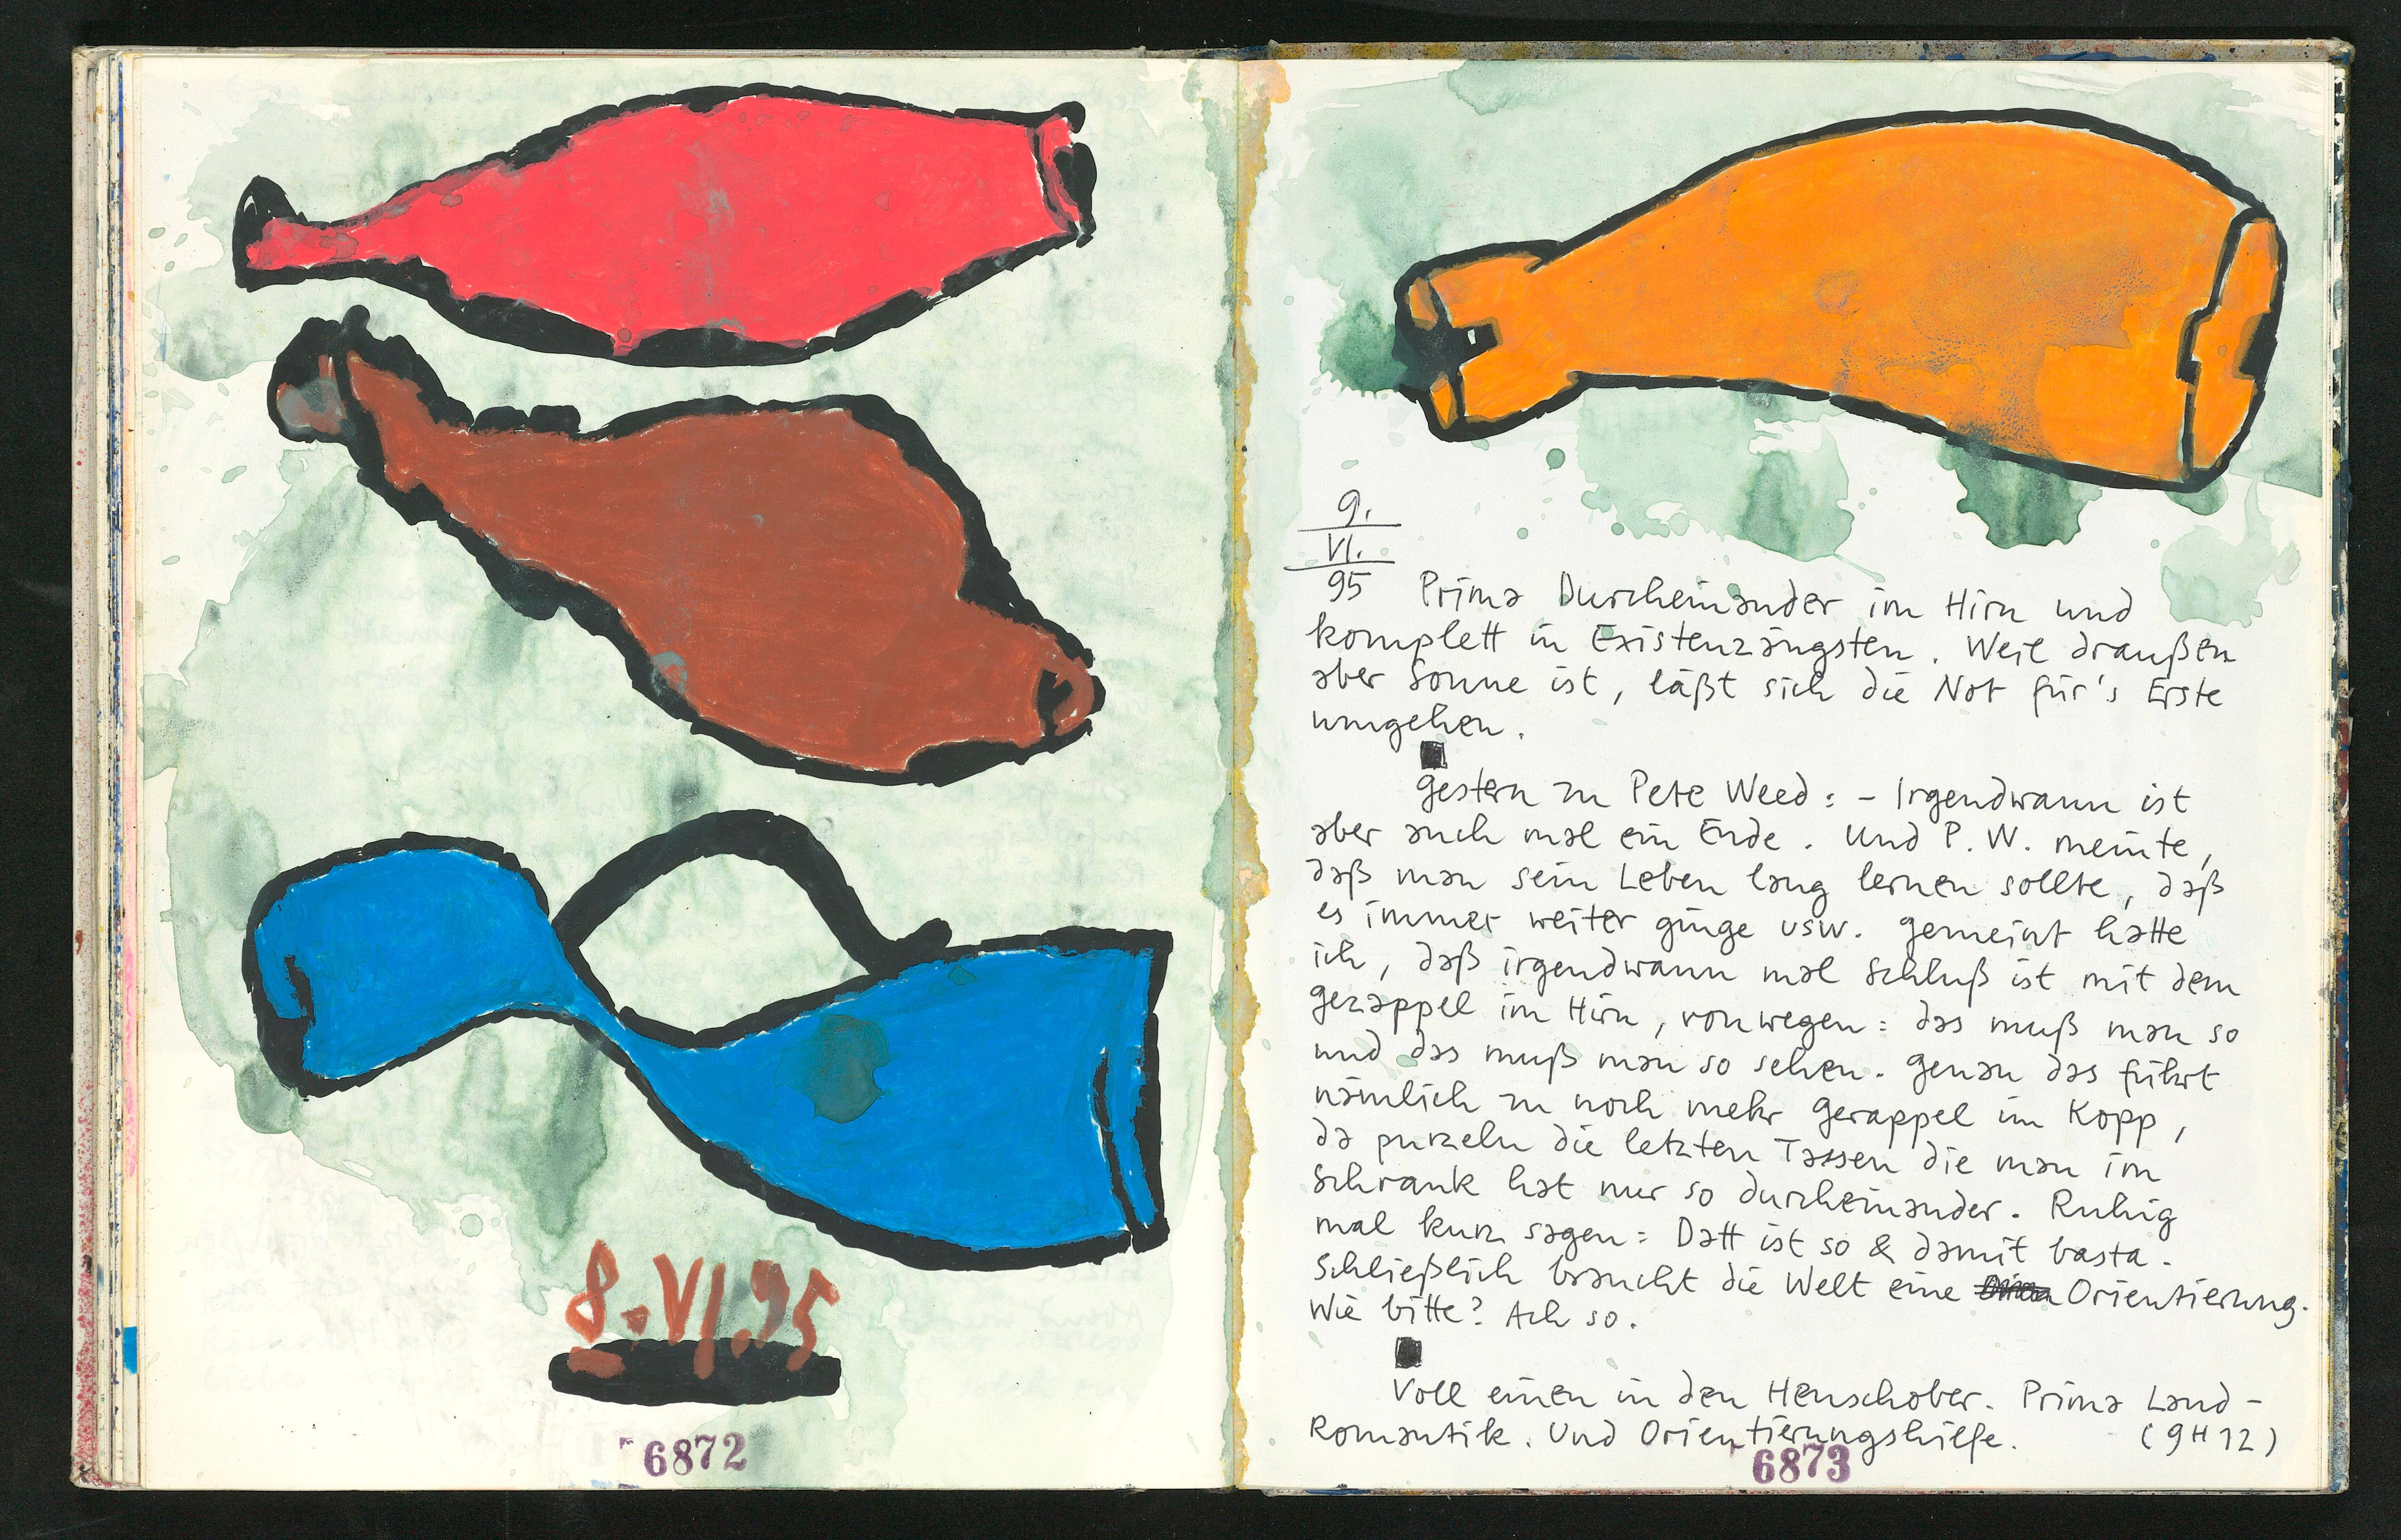 8.VI.95
6872
9.
VI.
95 Prima Durcheinander im Hirn und
komplett in Existenzängsten. Weil draußen
aber Sonne ist, läßt sich die Not für's Erste
umgehen.
Gestern zu Pete Weed: - Irgendwann ist
aber auch mal ein Ende. Und P. W. meinte,
daß man sein Leben lang lernen sollte, daß
es immer weiter ginge usw. Gemeint hatte
ich, daß irgendwann mal Schluß ist mit dem
Gezappel im Hirn, von wegen: das muß man so
und das muß man so sehen. Genau das führt
nämlich zu noch mehr Gerappel im Kopp,
da purzeln die letzten Tassen die man im
Schrank hat nur so durcheinander. Ruhig
mal kurz sagen: Datt ist so & damit basta.
Schließlich braucht die Welt eine Orientierung.
Wie bitte? Ach so.
Voll einen in den Heuschober. Prima Land-
Romantik. Und Orientierungshilfe. (9H12)
6873